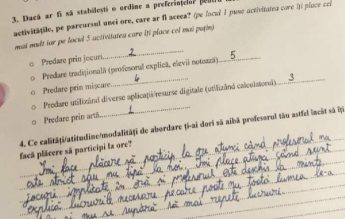 3. Dacă ar fi să stabilești o ordine a preferințelor pentru
activitățile, pe parcursul unei ore, care ar fi aceea? (pe locul 1 pune activitatea care îți place cel
mai mult iar pe locul 5 activitatea care îți place cel mai puțin)
o Predare prin jocuri 2
o Predare tradițională (profesorul explică, elevii notează) 5
o Predare prin mișcare 4
o Predare utilizând diverse aplicații/resurse digitale (utilizând calculatorul) 3
o Predare prin artă 1
4. Ce calități/atitudine/modalități de abordare ți-ai dori să aibă profesorul tău astfel încât să îți
facă plăcere să participi la ore?
Îmi face plăcere să particip la ore atunci când profesorul nu
este strict sau nu țipă la noi. Îmi place atunci când sunt
jocuri aplicate în oră și profesorul este deschis la minte,
explică lucrurile necesare pe care poate nu toată lumea le-a
și nu se supără să mai repete lucruri.